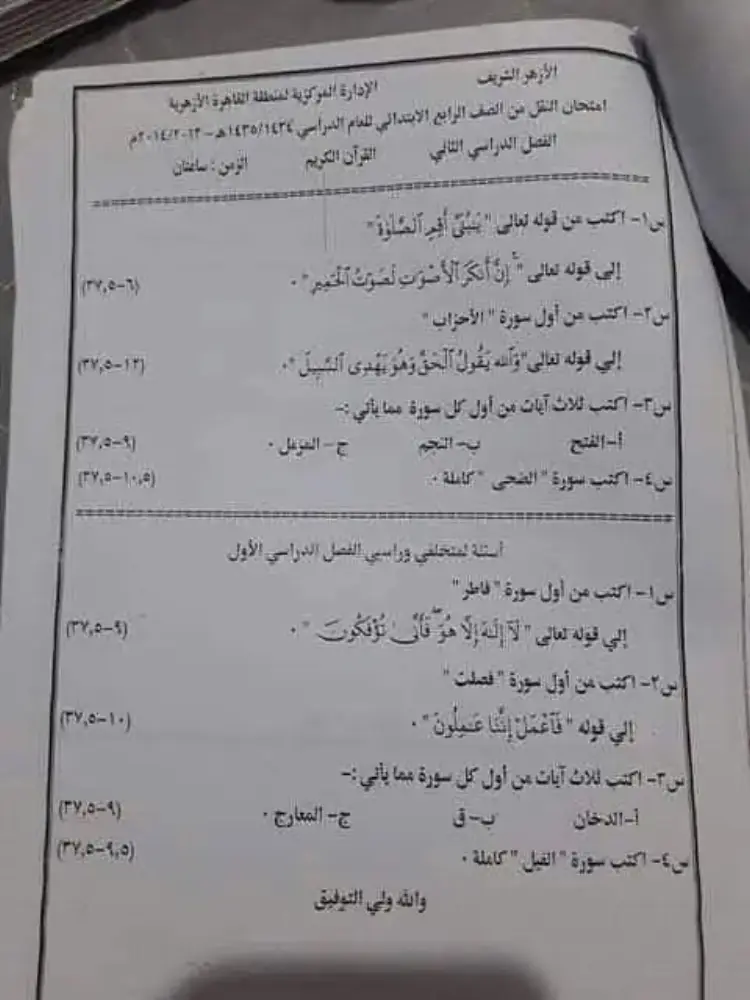 الأزهر الشريف الإدارة المركزية لمنطقة القاهرة الأزهرية
امتحان النقل من الصف الرابع الابتدائي للعام الدراسي ١٤٣٥/١٤٣٤هـ – ٢٠١٤/٢٠١٣م
الفصل الدراسي الثاني القرآن الكريم الزمن : ساعتان
س١- اكتب من قوله تعالى " يَٰبُنَيَّ أَقِمِ ٱلصَّلَوٰةَ "
إلي قوله تعالى " إِنَّ أَنكَرَ ٱلْأَصْوَٰتِ لَصَوْتُ ٱلْحَمِيرِ " . (٦-٣٧,٥)
س٢- اكتب من أول سورة " الأحزاب "
إلي قوله تعالى " وَٱللَّهُ يَقُولُ ٱلْحَقَّ وَهُوَ يَهْدِى ٱلسَّبِيلَ " . (١٢-٣٧,٥)
س٣- اكتب ثلاث آيات من أول كل سورة مما يأتي :-
أ- الفتح ب- النجم ج- المزمل . (٩-٣٧,٥)
س٤- اكتب سورة " الضحى " كاملة . (١٠,٥-٣٧,٥)
أسئلة لمتخلفي وراسبي الفصل الدراسي الأول
س١- اكتب من أول سورة " فاطر "
إلي قوله تعالى " لَآ إِلَٰهَ إِلَّا هُوَ ۖ فَأَنَّىٰ تُؤْفَكُونَ " . (٩-٣٧,٥)
س٢- اكتب من أول سورة " فصلت "
إلي قوله " فَٱعْمَلْ إِنَّنَا عَٰمِلُونَ " . (١٠-٣٧,٥)
س٣- اكتب ثلاث آيات من أول كل سورة مما يأتي :-
أ- الدخان ب- ق ج- المعارج . (٩-٣٧,٥)
س٤- اكتب سورة " الفيل " كاملة . (٩,٥-٣٧,٥)
والله ولي التوفيق